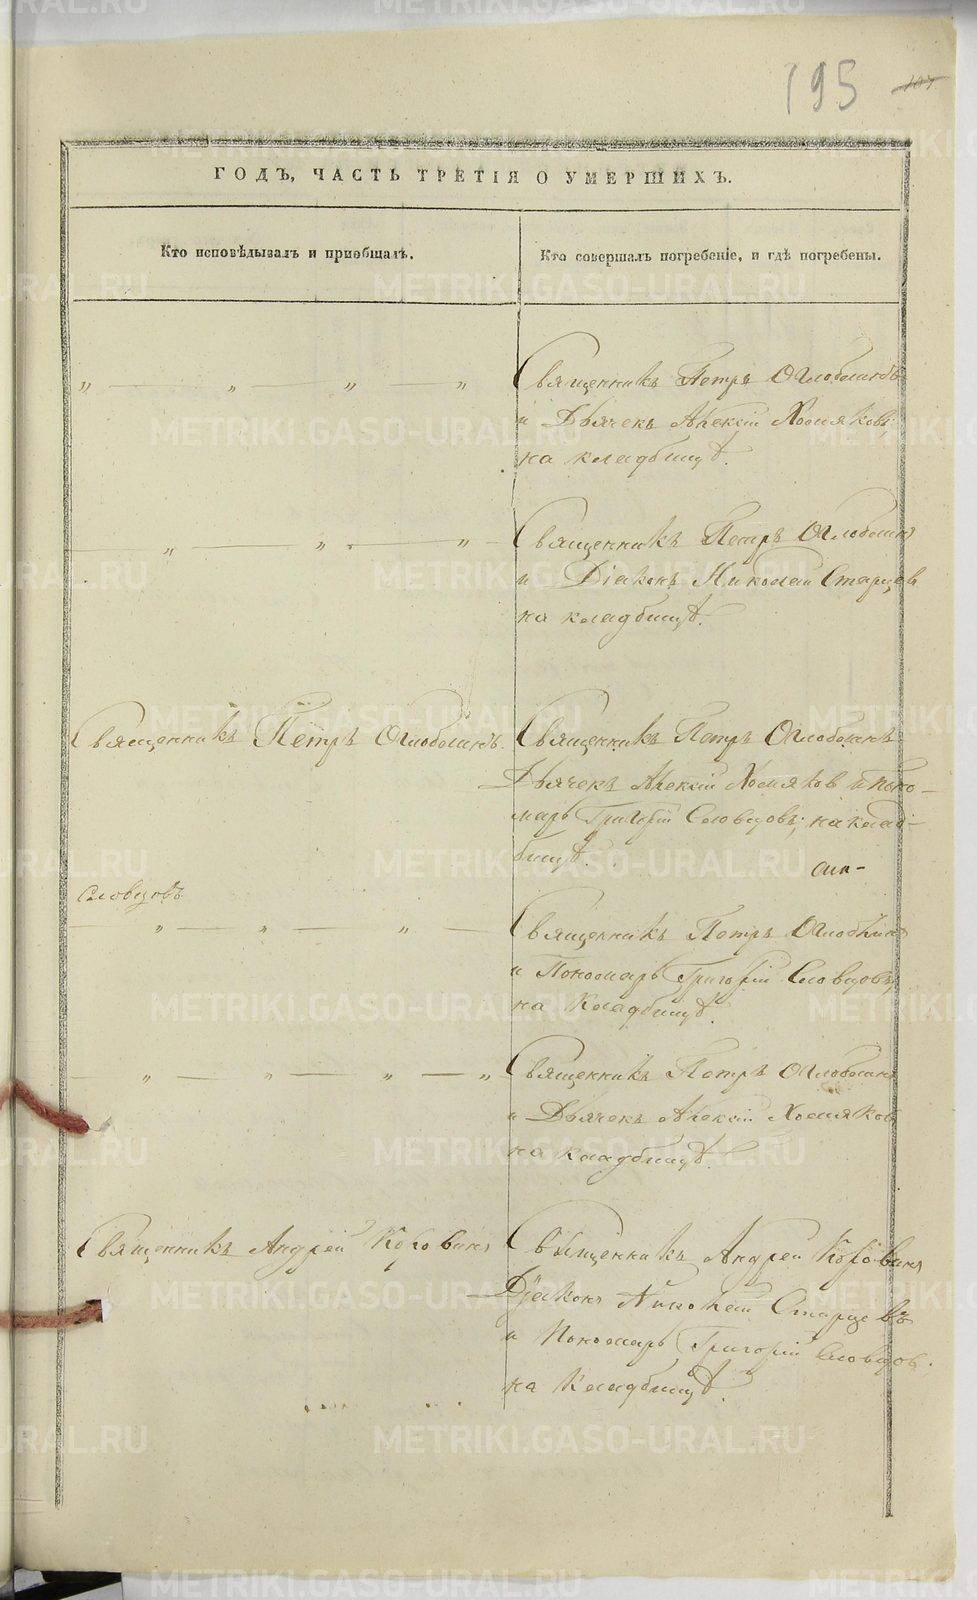 195 107
ГОДЪ, ЧАСТЬ ТРЕТІЯ О УМЕРШИХЪ.
Кто исповѣдывалъ и пріобщалъ.
Кто совершалъ погребеніе, и гдѣ погребены.
„ — „ — „ — „
Священникъ Петръ Оглоблинъ
и Дьячекъ Алексій Хомяковъ
на кладбищѣ.
„ — „ — „
Священникъ Петръ Оглоблинъ
и Діаконъ Николай Старцев
на кладбищѣ.
Священникъ Петръ Оглоблинъ.
Священникъ Петръ Оглоблинъ
Дьячекъ Алексій Хомяков и Поно-
марь Григорій Словцовъ; на клад-
бищѣ.
Словцовъ
„ — „ — „
Священникъ Петръ Оглоблинъ
и Пономарь Григорій Словцовъ,
на Кладбищѣ.
„ — „ — „ — „
Священникъ Петръ Оглоблинъ
и Дьячекъ Алексій Хомяков
на кладбищѣ.
Священникъ Андрей Коровинъ
Священникъ Андрей Коровинъ
Діаконъ Николай Старцевъ
и Пономарь Григорій Словцов.
на Кладбищѣ.
METRIKI.GASO-URAL.RU